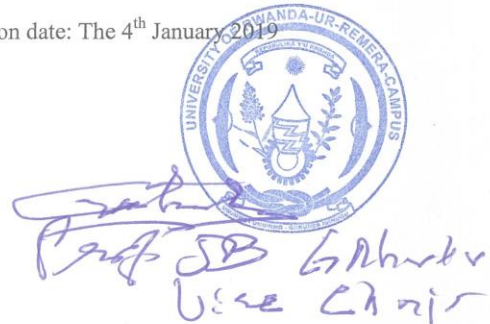 on date: The 4th January 2019
UNIVERSITY OF RWANDA-UR-REMERA-CAMPUS
REPUBULIKA Y'U RWANDA
Prof SB
Vice Chair